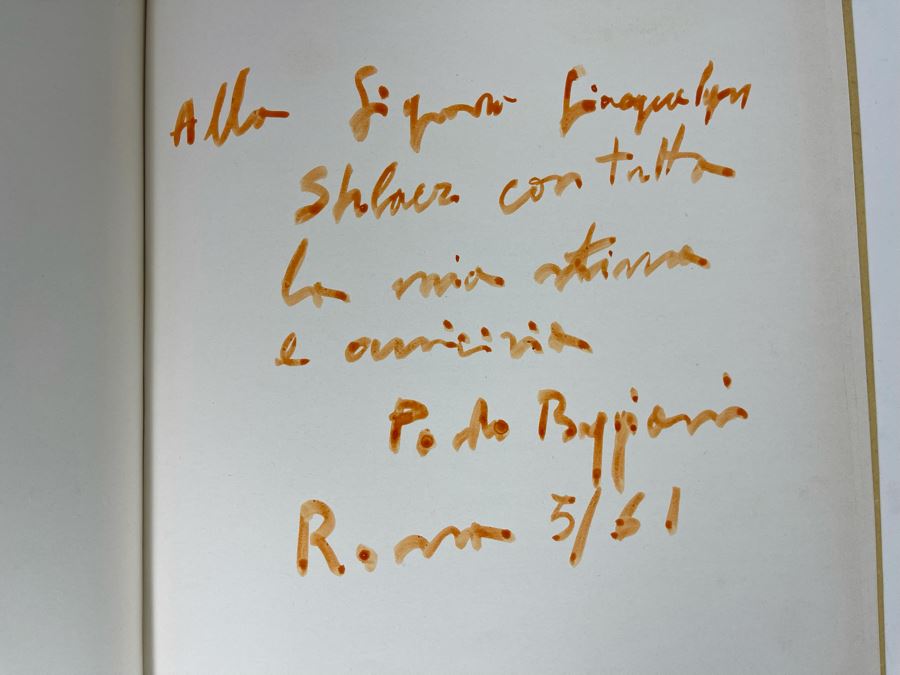 Alla Signora Giaquelyn
Shlaer con tutta
la mia stima
e amicizia
Paolo Buggiani
Roma 5/61